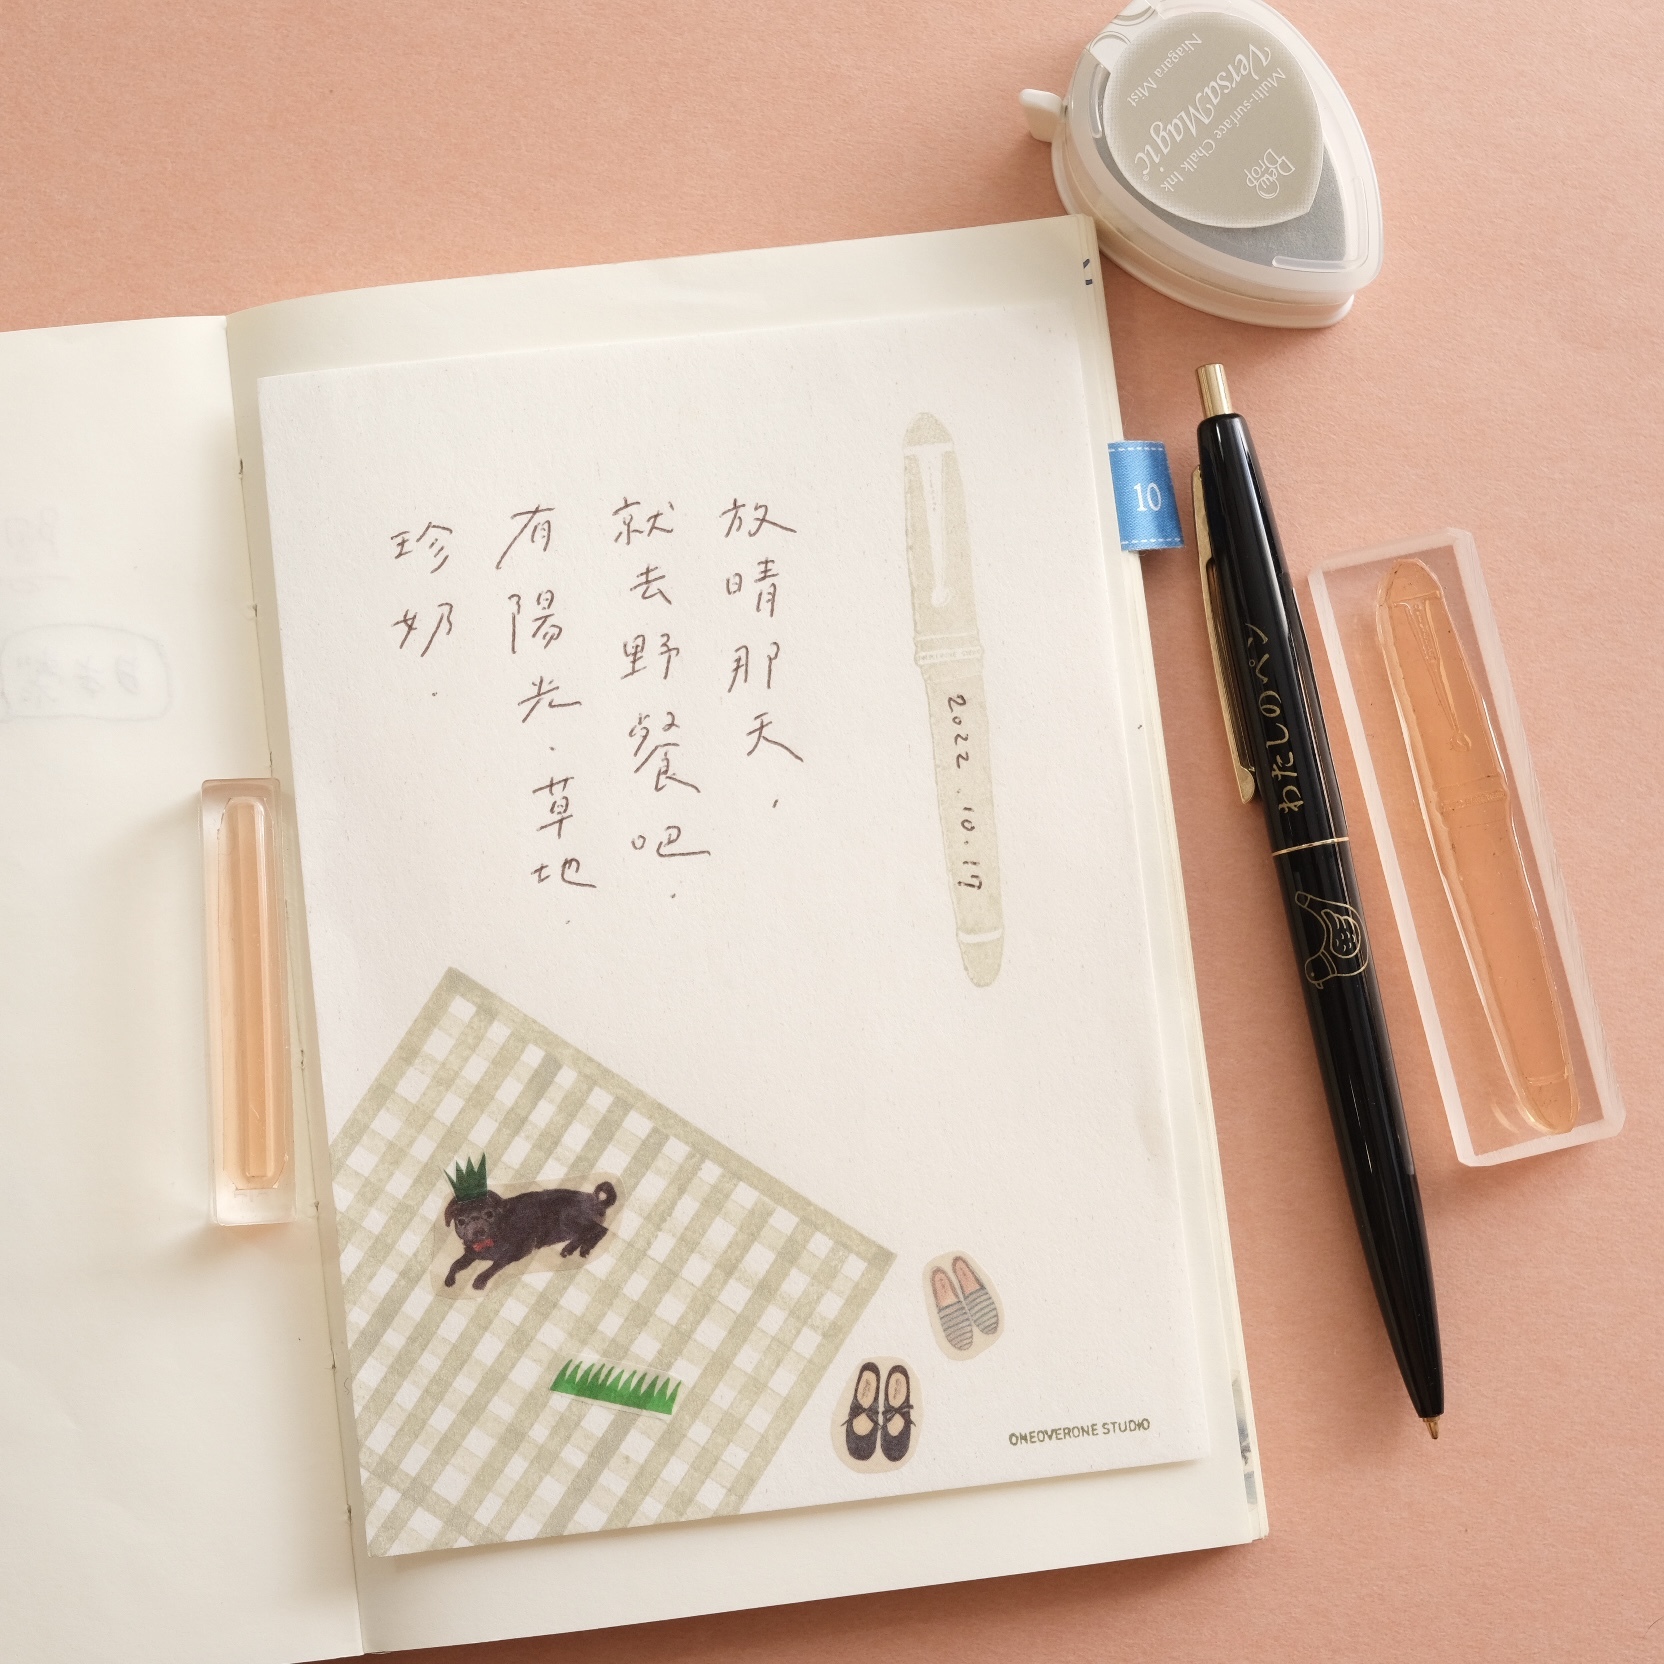 放晴那天，
就去野餐吧．
有陽光．草地．
珍奶．
2022.10.17
ONEOVERONE STUDIO
10
わたしのペン
Dew Drop
Multi-surface Chalk Ink
VersaMagic
Niagara Mist